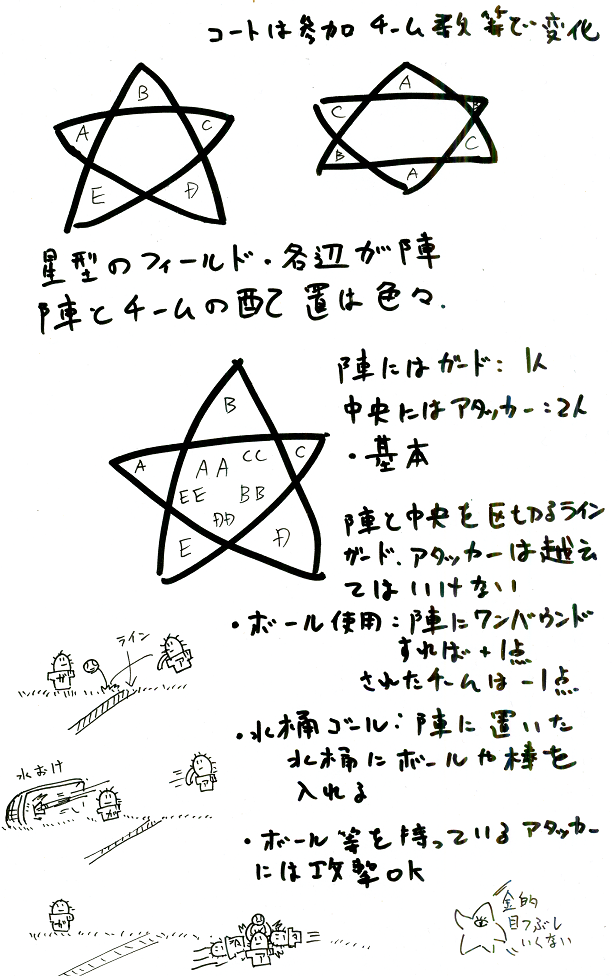 コートは参加チーム数等で変化
B
A
C
E
D
A
C
B
B
C
A
星型のフィールド・各辺が陣
陣とチームの配置は色々.
陣にはガード:1人
中央にはアタッカー:2人
・基本
B
A
AA
CC
C
EE
BB
DD
E
D
陣と中央を区切るライン
ガード、アタッカーは越え
てはいけない
・ボール使用:陣にワンバウンド
すれば+1点
されたチームは-1点
ライン
ガ
ア
・水桶ゴール:陣に置いた
水桶にボールや棒を
入れる
水おけ
ガ
ア
・ボール等を持っているアタッカー
には攻撃OK
ガ
ア
ア
ア
金的
目つぶし
いくない